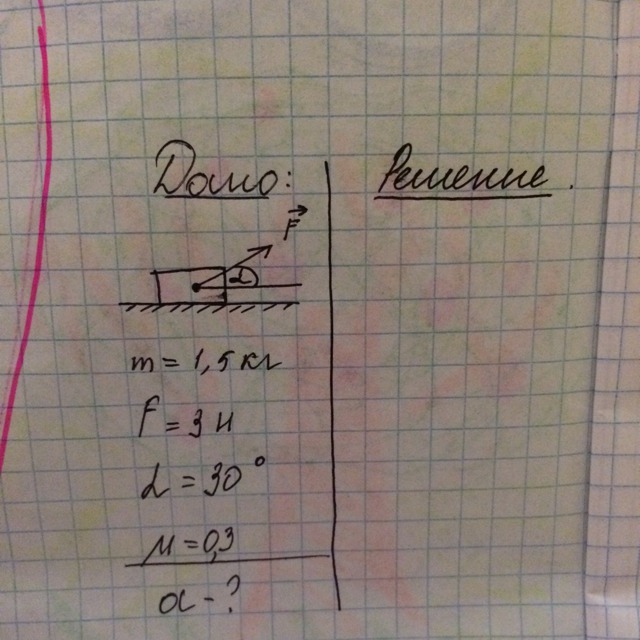 Дано:
Решение.
F
α
m = 1,5 кг
F = 3 Н
α = 30°
μ = 0,3
a - ?